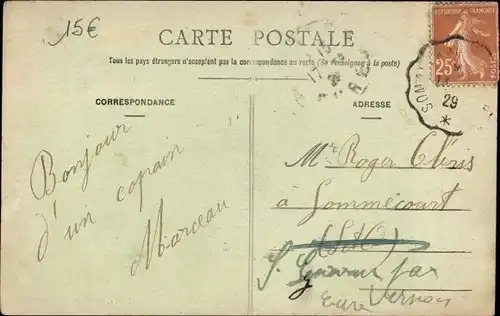 15€
CARTE POSTALE
Tous les pays étrangers n'acceptent pas la correspondance au recto (Se renseigner à la poste)
CORRESPONDANCE
ADRESSE
REPUBLIQUE FRANÇAISE
25
29
Bonjour
d'un copain
Marceau
Mr Roger Clénis
à Gommécourt
(S&O)
par
Eure Vernon